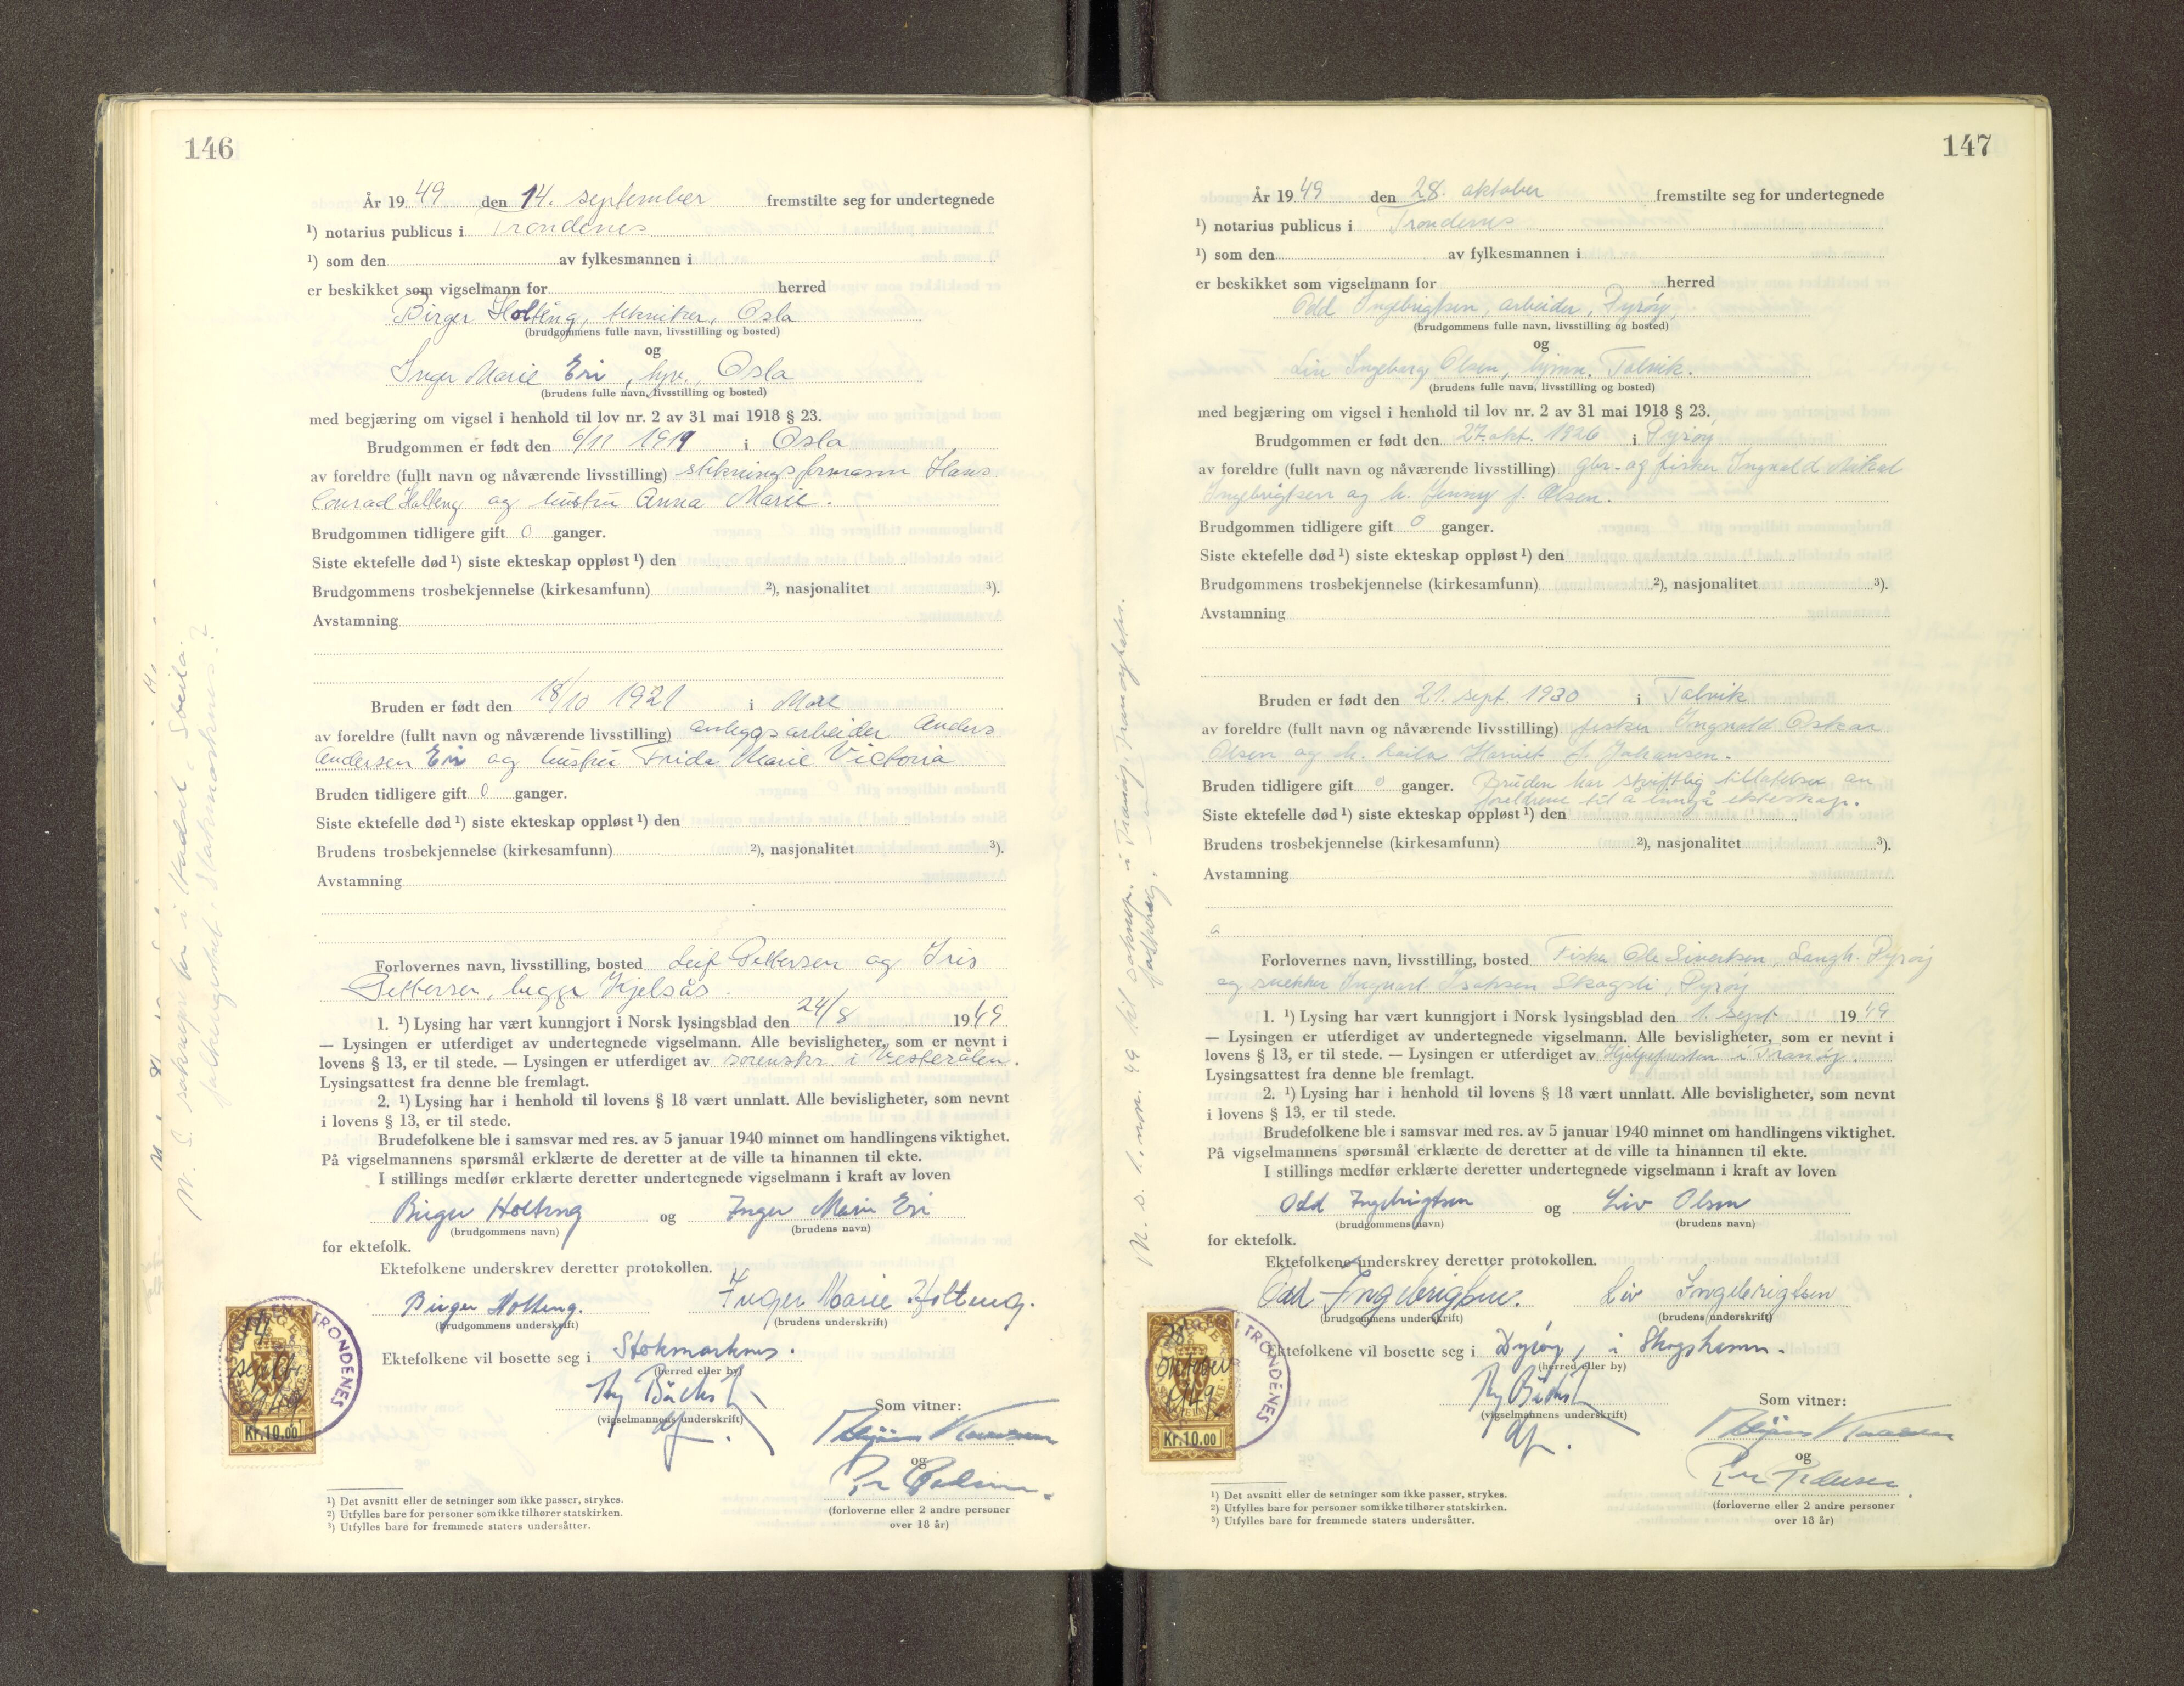 146
År 19 49 den 14. september fremstilte seg for undertegnede
¹) notarius publicus i Trondenes
¹) som den av fylkesmannen i
er beskikket som vigselmann for herred
Birger Holteng, tekniker, Oslo
(brudgommens fulle navn, livsstilling og bosted)
og
Inger Marie Eri, hjv., Oslo
(brudens fulle navn, livsstilling og bosted)
med begjæring om vigsel i henhold til lov nr. 2 av 31 mai 1918 § 23.
Brudgommen er født den 6/11 1919 i Oslo
av foreldre (fullt navn og nåværende livsstilling) stikningsformann Hans
Conrad Holteng og hustru Anna Marie.
Brudgommen tidligere gift 0 ganger.
Siste ektefelle død ¹) siste ekteskap oppløst ¹) den
Brudgommens trosbekjennelse (kirkesamfunn) ²), nasjonalitet ³).
Avstamning
Bruden er født den 18/10 1921 i
av foreldre (fullt navn og nåværende livsstilling) anleggsarbeider Anders
Andersen Eri og hustru Frida Marie Victoria
Bruden tidligere gift 0 ganger.
Siste ektefelle død ¹) siste ekteskap oppløst ¹) den
Brudens trosbekjennelse (kirkesamfunn) ²), nasjonalitet ³).
Avstamning
Forlovernes navn, livsstilling, bosted Leif Pettersen og Iris
Pettersen, begge Kjelsås.
1. ¹) Lysing har vært kunngjort i Norsk lysingsblad den 24/8 1949
— Lysingen er utferdiget av undertegnede vigselmann. Alle bevisligheter, som er nevnt i
lovens § 13, er til stede. — Lysingen er utferdiget av sorenskr. i Vesterålen.
Lysingsattest fra denne ble fremlagt.
2. ¹) Lysing har i henhold til lovens § 18 vært unnlatt. Alle bevisligheter, som nevnt
i lovens § 13, er til stede.
Brudefolkene ble i samsvar med res. av 5 januar 1940 minnet om handlingens viktighet.
På vigselmannens spørsmål erklærte de deretter at de ville ta hinannen til ekte.
I stillings medfør erklærte deretter undertegnede vigselmann i kraft av loven
Birger Holteng og Inger Marie Eri
(brudgommens navn) (brudens navn)
for ektefolk.
Ektefolkene underskrev deretter protokollen.
Birger Holteng. Inger Marie Holteng.
(brudgommens underskrift) (brudens underskrift)
Ektefolkene vil bosette seg i Stokmarknes.
(herred eller by)
(vigselmannens underskrift)
Som vitner:
og
(forloverne eller 2 andre personer
over 18 år)
14
septbr.
1949
Kr.10.00
TRONDENES
¹) Det avsnitt eller de setninger som ikke passer, strykes.
²) Utfylles bare for personer som ikke tilhører statskirken.
³) Utfylles bare for fremmede staters undersåtter.
147
År 19 49 den 28. oktober fremstilte seg for undertegnede
¹) notarius publicus i Trondenes
¹) som den av fylkesmannen i
er beskikket som vigselmann for herred
Odd Ingebrigtsen, arbeider, Dyrøy,
(brudgommens fulle navn, livsstilling og bosted)
og
Liv Ingeborg Olsen, hjmv. Talvik.
(brudens fulle navn, livsstilling og bosted)
med begjæring om vigsel i henhold til lov nr. 2 av 31 mai 1918 § 23.
Brudgommen er født den 27. okt. 1926 i Dyrøy
av foreldre (fullt navn og nåværende livsstilling) gbr- og fisker Ingvald Mikal
Ingebrigtsen og h. Jenny f. Olsen.
Brudgommen tidligere gift 0 ganger.
Siste ektefelle død ¹) siste ekteskap oppløst ¹) den
Brudgommens trosbekjennelse (kirkesamfunn) ²), nasjonalitet ³).
Avstamning
Bruden er født den 21. sept. 1930 i Talvik
av foreldre (fullt navn og nåværende livsstilling) fisker Ingvald Oskar
Olsen og h. Laila Harriet f. Johansen.
Bruden tidligere gift 0 ganger. Bruden har skriftlig tillatelse av
foreldrene til å inngå ekteskap.
Siste ektefelle død ¹) siste ekteskap oppløst ¹) den
Brudens trosbekjennelse (kirkesamfunn) ²), nasjonalitet ³).
Avstamning
Forlovernes navn, livsstilling, bosted Fisker Ole Sivertsen, Langh. Dyrøy
og snekker Ingvart Isaksen Skogsli, Dyrøy
1. ¹) Lysing har vært kunngjort i Norsk lysingsblad den 1. sept 1949
— Lysingen er utferdiget av undertegnede vigselmann. Alle bevisligheter, som er nevnt i
lovens § 13, er til stede. — Lysingen er utferdiget av Hjelpepresten i Tranøy.
Lysingsattest fra denne ble fremlagt.
2. ¹) Lysing har i henhold til lovens § 18 vært unnlatt. Alle bevisligheter, som nevnt
i lovens § 13, er til stede.
Brudefolkene ble i samsvar med res. av 5 januar 1940 minnet om handlingens viktighet.
På vigselmannens spørsmål erklærte de deretter at de ville ta hinannen til ekte.
I stillings medfør erklærte deretter undertegnede vigselmann i kraft av loven
Odd Ingebrigtsen og Liv Olsen
(brudgommens navn) (brudens navn)
for ektefolk.
Ektefolkene underskrev deretter protokollen.
Odd Ingebrigtsen. Liv Ingebrigtsen
(brudgommens underskrift) (brudens underskrift)
Ektefolkene vil bosette seg i Dyrøy, i Skogshamn.
(herred eller by)
(vigselmannens underskrift)
Som vitner:
og
Per Pedersen.
(forloverne eller 2 andre personer
over 18 år)
28
oktober
1949
Kr.10.00
I TRONDENES
¹) Det avsnitt eller de setninger som ikke passer, strykes.
²) Utfylles bare for personer som ikke tilhører statskirken.
³) Utfylles bare for fremmede staters undersåtter.